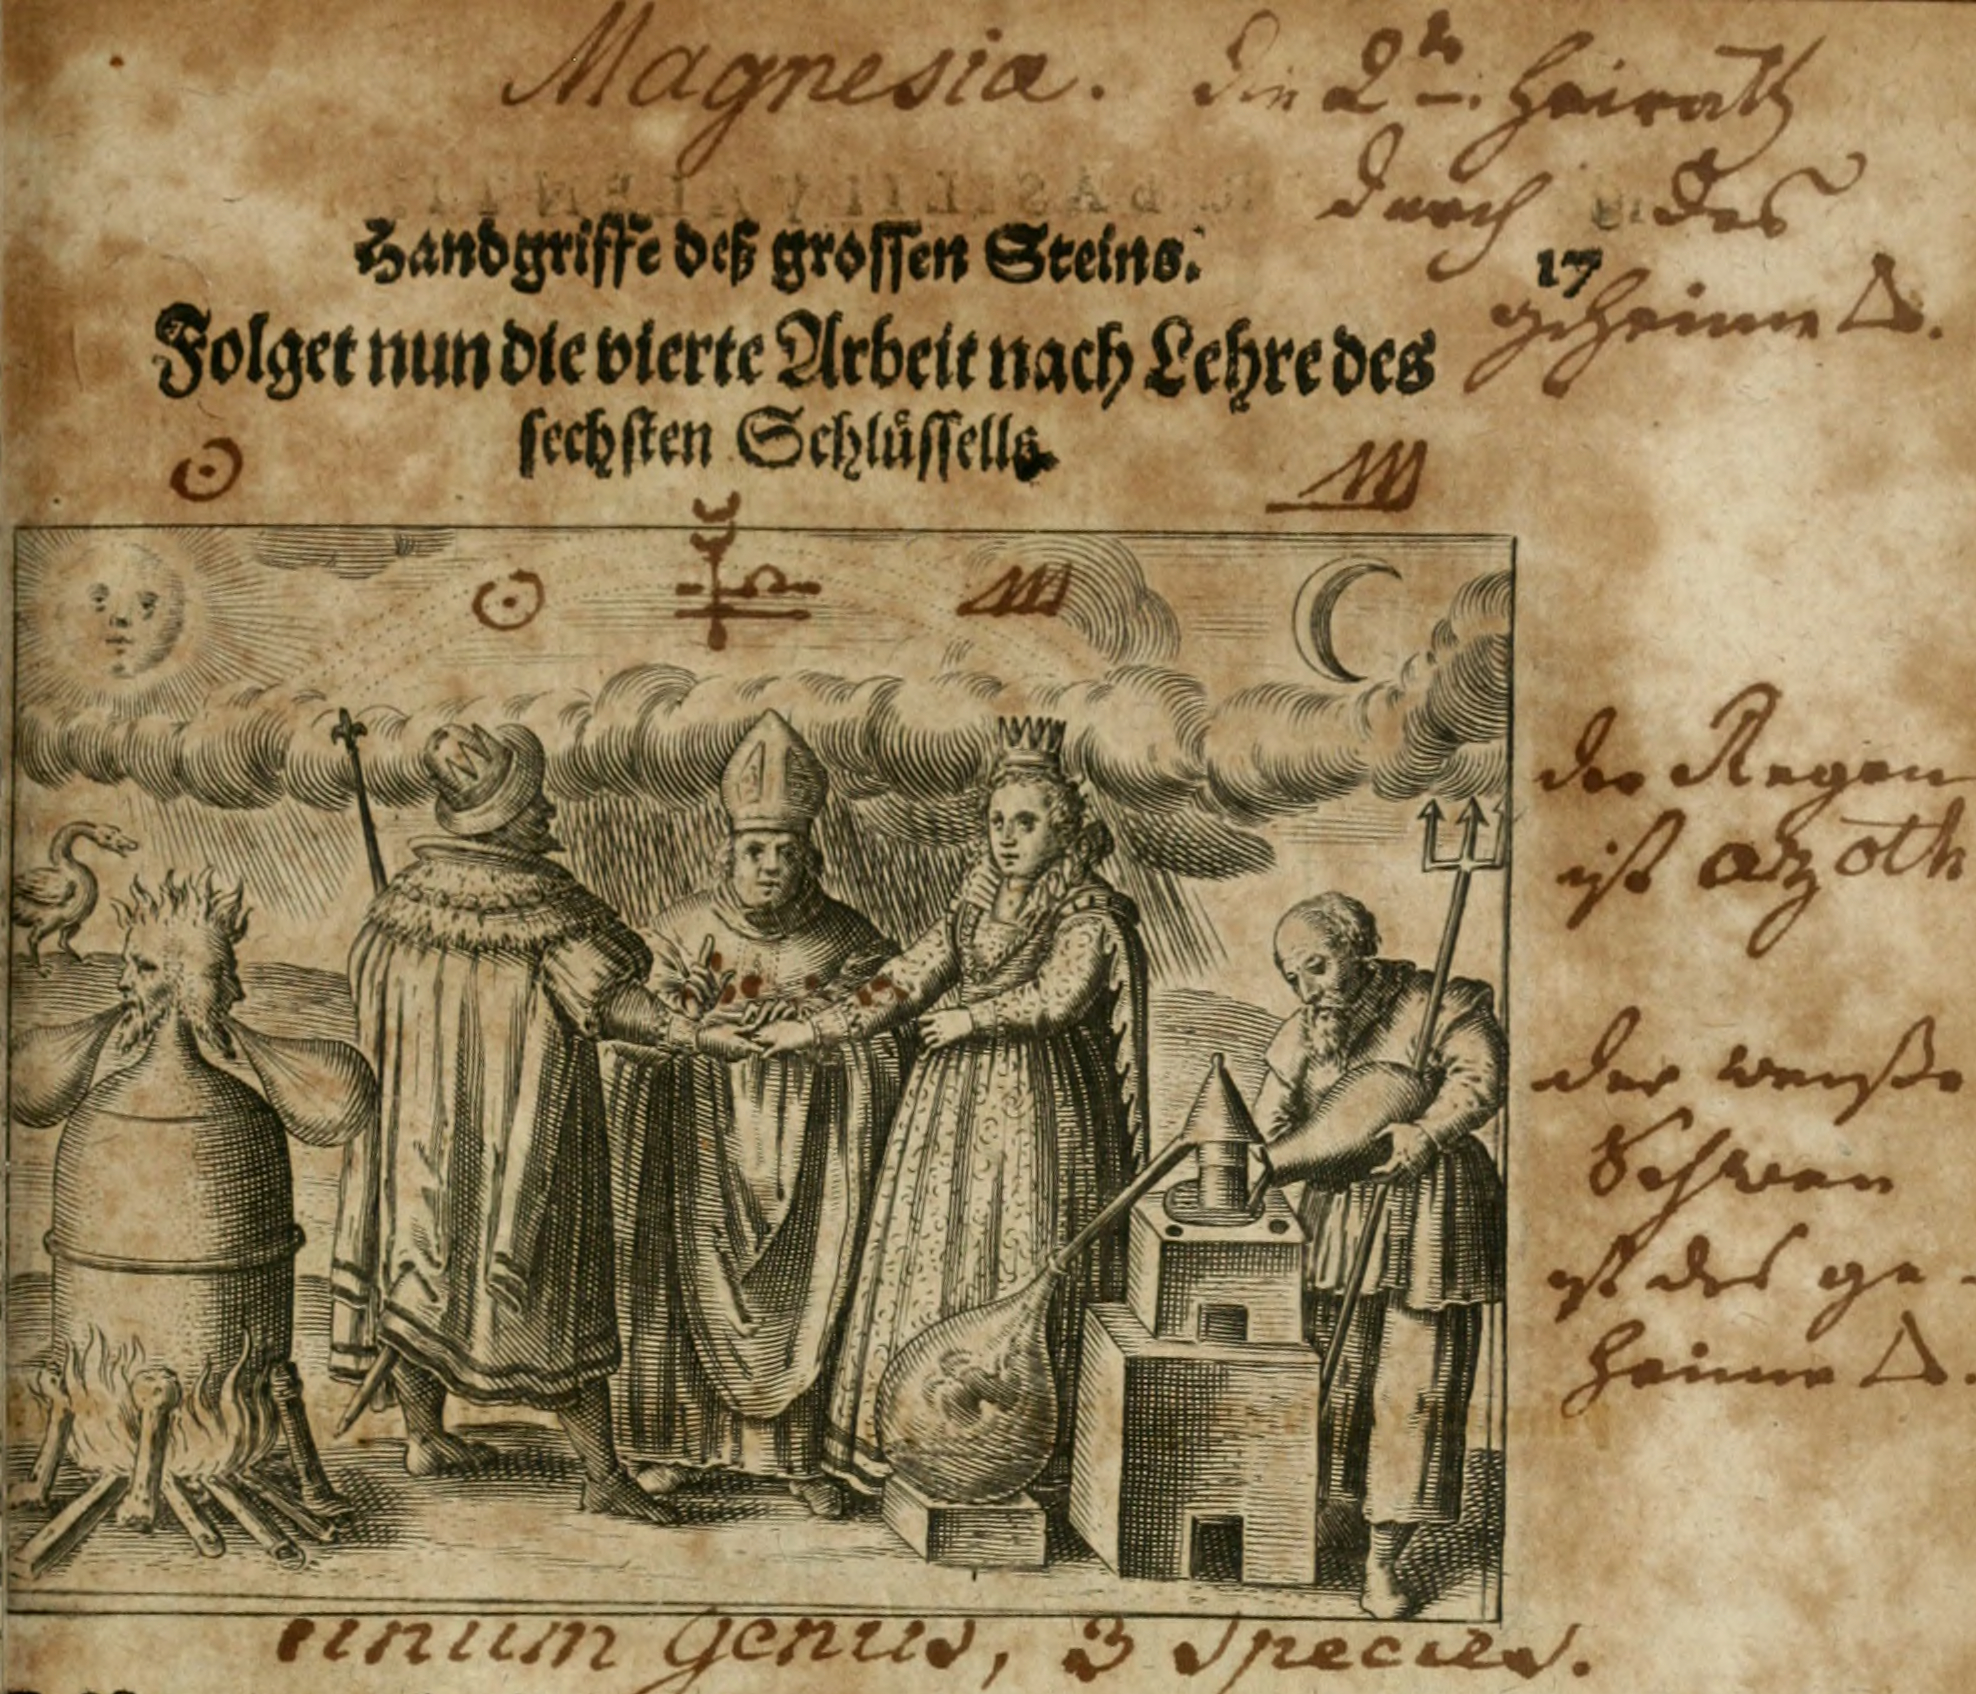 Magnesia. die 2te. Heirath
durch das
Handgriffe deß grossen Steins. 17
geheime △.
Folget nun die vierte Arbeit nach Lehre des
sechsten Schlüssells.
☉
☉
der Regen
ist azoth
der weiße
Schwan
ist das ge-
heime △.
unum genus, 3 Species.